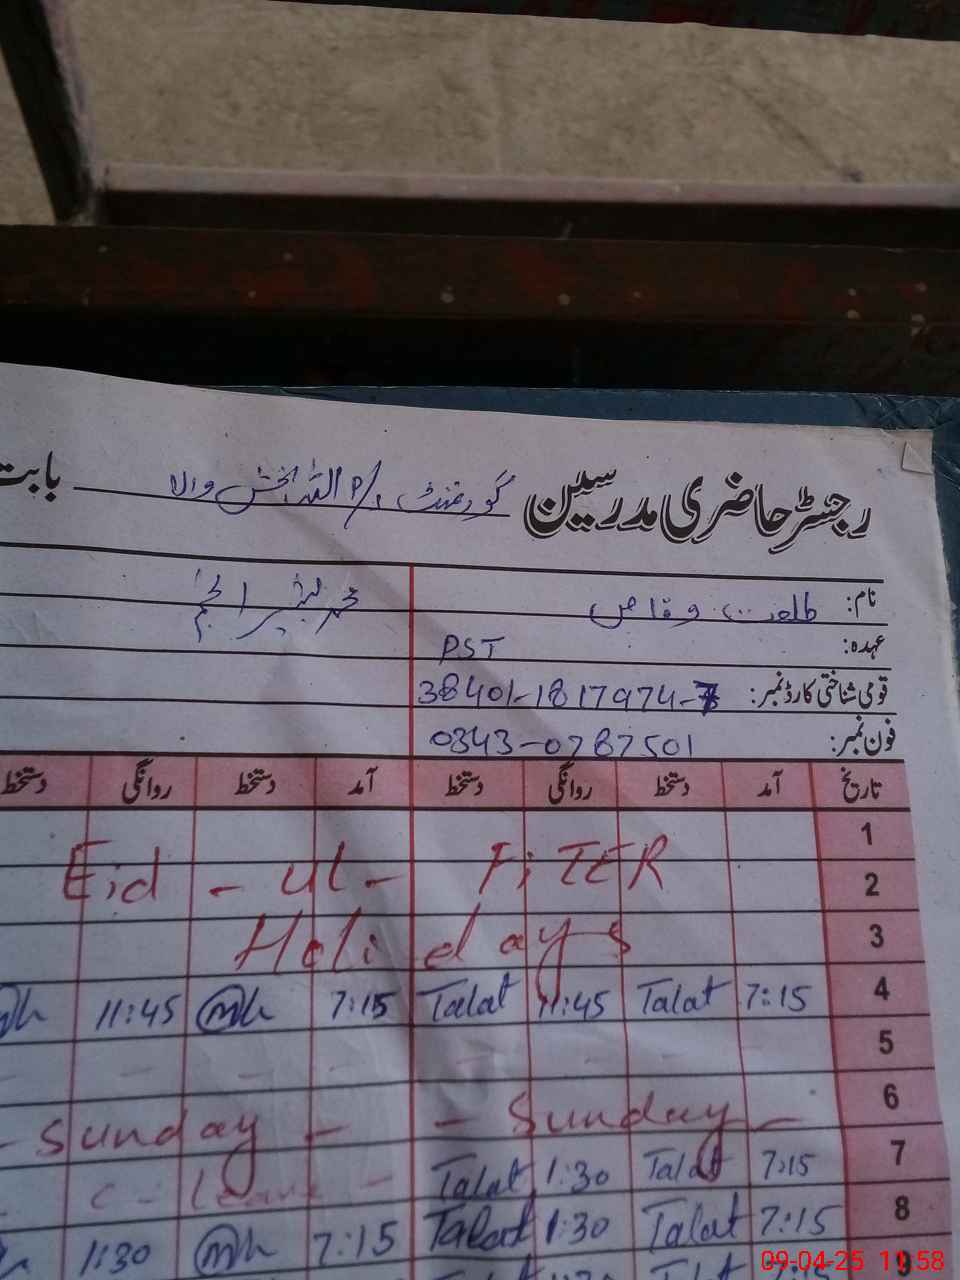 رجسٹر حاضری مدرسین گورنمنٹ P/S اللہ بخش والا بابت
نام: طلعت وقاص محمد بشیر انجم
عہدہ: PST
قومی شناختی کارڈ نمبر: 38401-1817974-7
فون نمبر: 0343-0787501
تاریخ آمد دستخط روانگی دستخط آمد دستخط روانگی دستخط
1
2 Eid - ul - FiTER
3 Holidays
4 7:15 Talat 11:45 Talat 7:15 11:45
5
6 - Sunday - - Sunday -
7 7:15 Talat 1:30 Talat C - Leave -
8 7:15 Talat 1:30 Talat 7:15 1:30
9
09-04-25 11:58